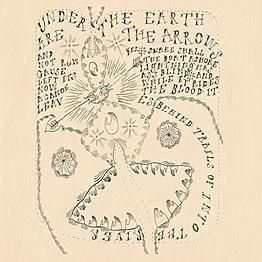 UNDER THE EARTH
ARE THE ARROWS
AND
NOT RUN
GAUSE
LEFT ITS
NOW
ASAHOR
LEAV
SNAKE SHALL
THE BOAT ASHORE
LIGHTNING
AS BLIND AS AND
WHILE IT RIDES
THE BLOOD IT
ES BEHIND TRAILS OF INTO
THE RIVER